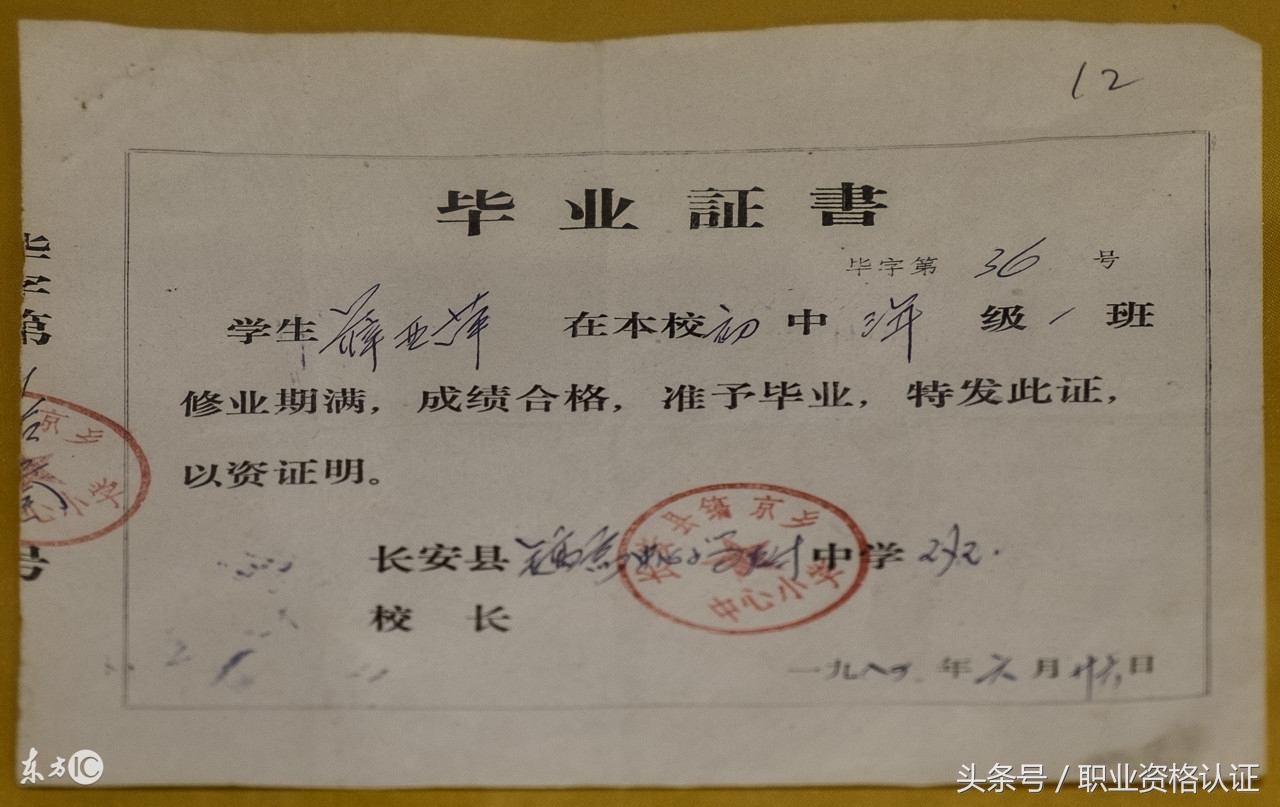 12
毕业証書
毕字第 36 号
学生 薛亚萍 在本校初中 三年级一班
修业期满，成绩合格，准予毕业，特发此证，
以资证明。
长安县 中学
校长
一九八 年六月廿六日
毕字第
号
京乡
心小学
县 京乡
中心小学
东方IC
头条号 / 职业资格认证